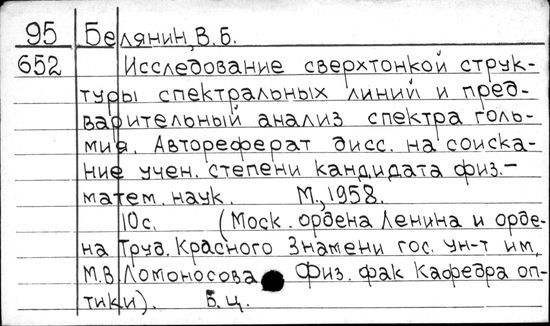 95 Белянин, В.Б.
652 Исследование сверхтонкой струк-
туры спектральных линий и пред-
варительный анализ спектра голь-
мия. Автореферат дисс. на соиска-
ние учен. степени кандидата физ.-
матем. наук. М., 1958.
10с. (Моск. ордена Ленина и орде-
на Труд. Красного Знамени гос. ун-т им.
М.В. Ломоносова Физ. фак Кафедра оп-
тики). Б.ц.